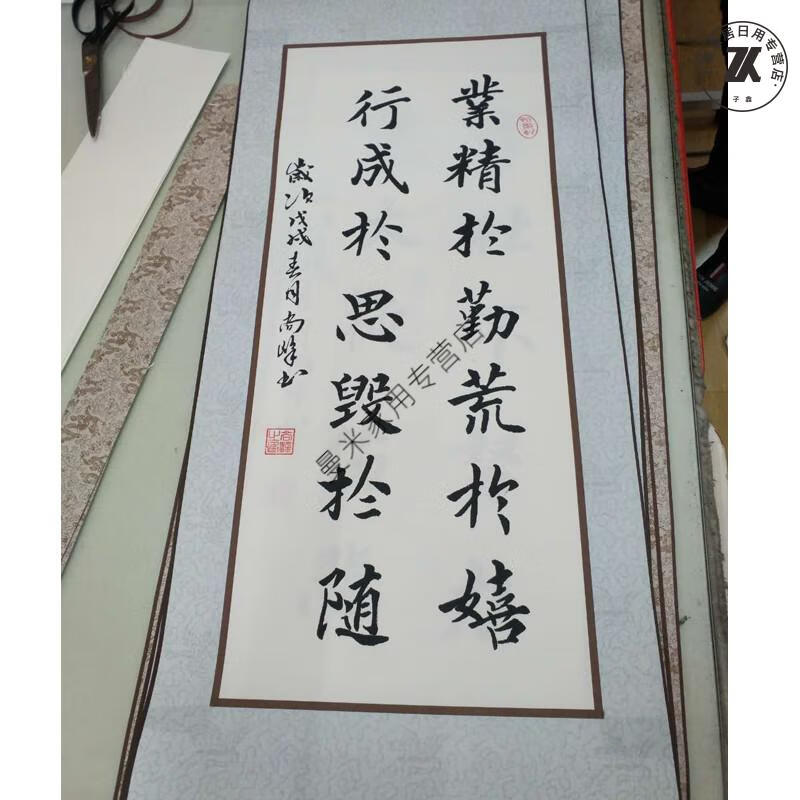 業精於勤荒於嬉
行成於思毀於随
歲次戊戌春月尚峰书
曼米家用专营店
居日用专营店
子鑫